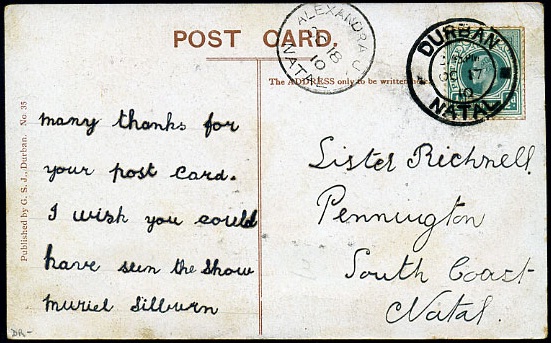 POST CARD.
The ADDRESS only to be written
ALEXANDRA J
18
10
NATAL
DURBAN
17
10
NATAL
Published by G. S. J., Durban. No. 35
many thanks for
your post card.
I wish you could
have seen the show
Muriel Silburn
Sister Bicknell
Pennington
South Coast
Natal.
DR-